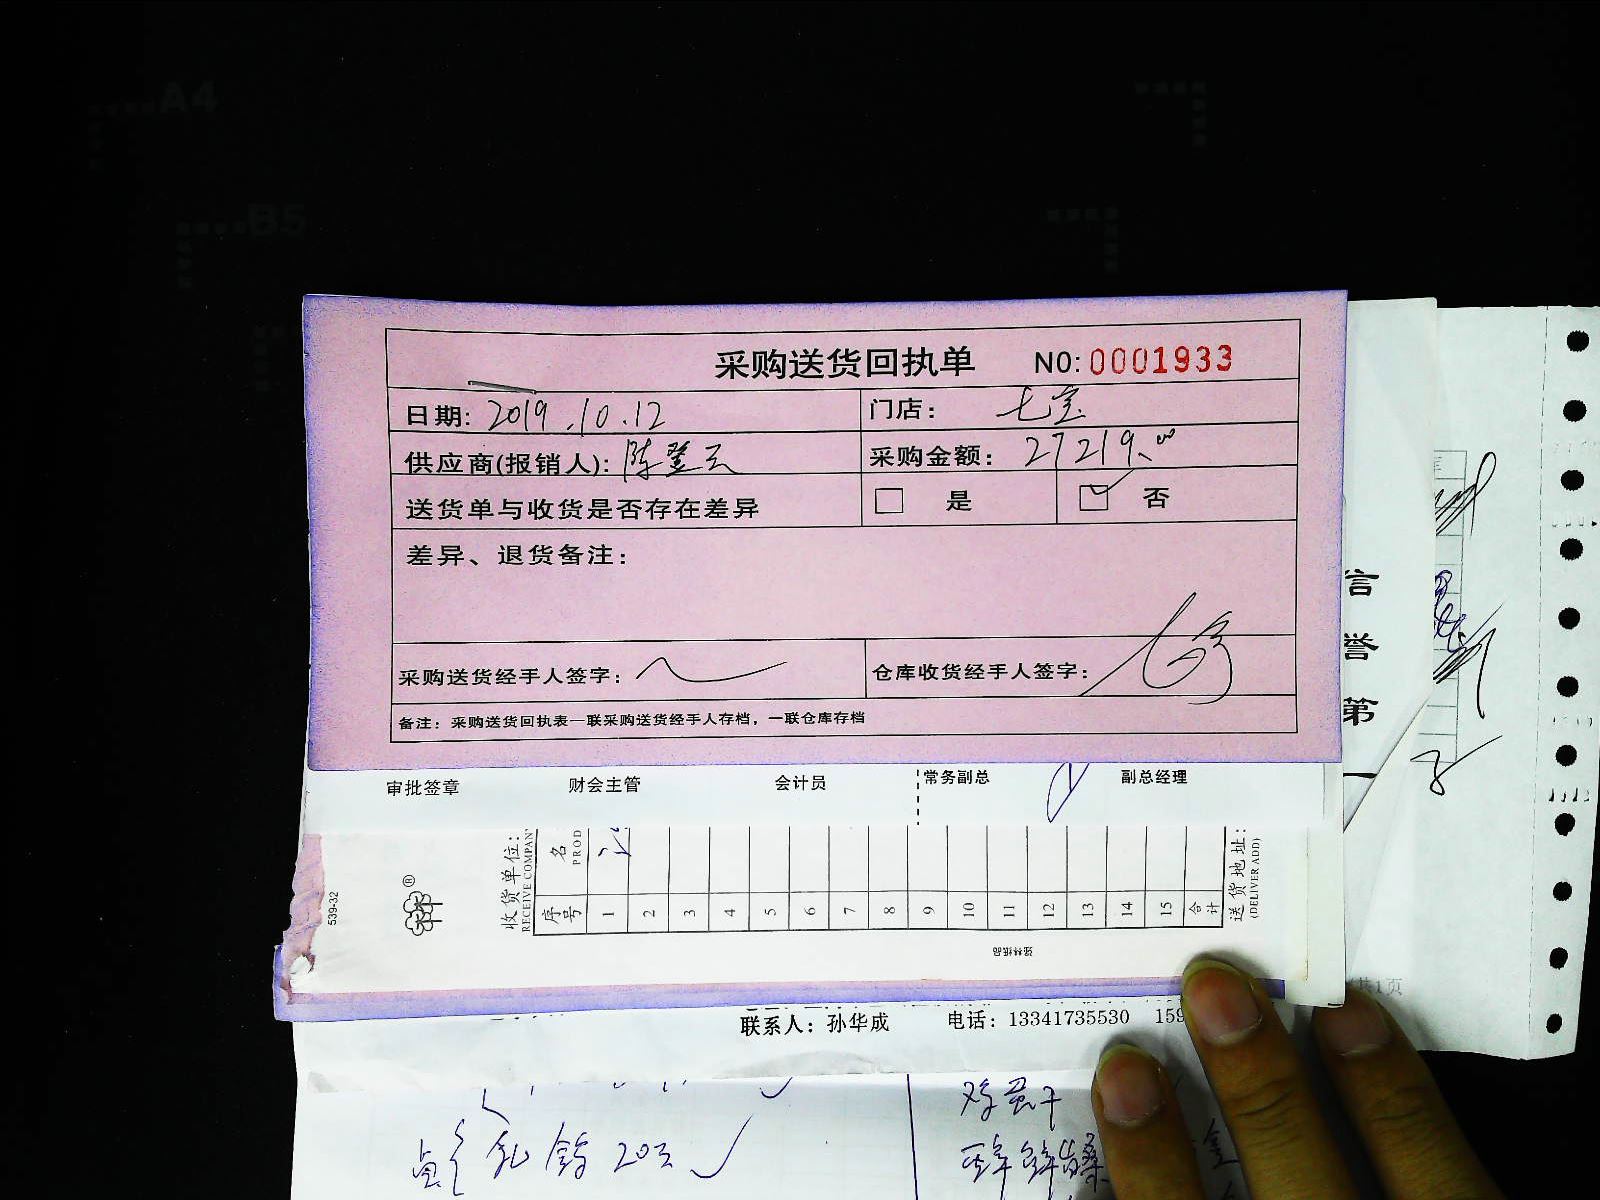 A4
B5
采购送货回执单 NO:0001933
日期: 2019.10.12 门店: 七宝
供应商(报销人): 陈登云 采购金额: 27219.00
送货单与收货是否存在差异 是 否
差异、退货备注:
采购送货经手人签字: 仓库收货经手人签字:
备注: 采购送货回执表一联采购送货经手人存档，一联仓库存档
审批签章 财会主管 会计员 常务副总 副总经理
收货单位:
RECEIVE COMPAN
名
PROD
序号 1 2 3 4 5 6 7 8 9 10 11 12 13 14 15 合计
送货地址:
(DELIVER ADD)
539-32
信誉第一
共1页
联系人: 孙华成 电话: 13341735530 159
鸡蛋干